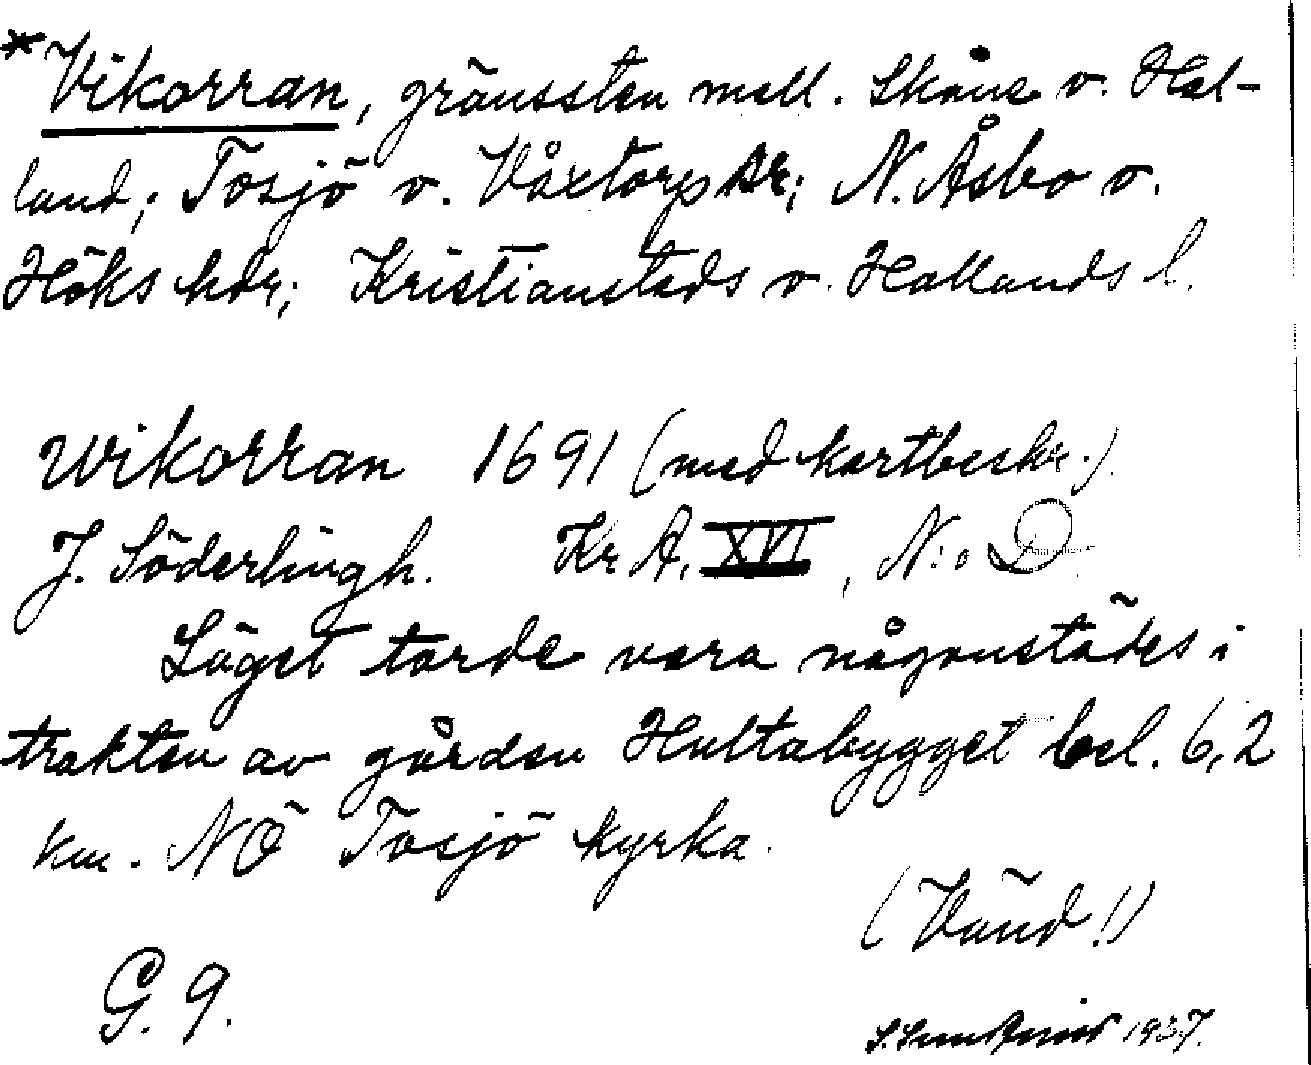 *Vikorran, gränssten mell. Skåne o. Hal-
land; Tosjö o. Våxtorps sr; N. Åsbo o.
Höks hdr; Kristianstads o. Hallands l.
wikorran 1691 (med kartbeskr.).
J. Söderlingh. Kr A. XVI, N:o D
Läget torde vara någonstädes i
trakten av gården Hultabygget bel. 6,2
km. NÖ Tosjö kyrka.
(Vänd!)
G. 9.
1937.